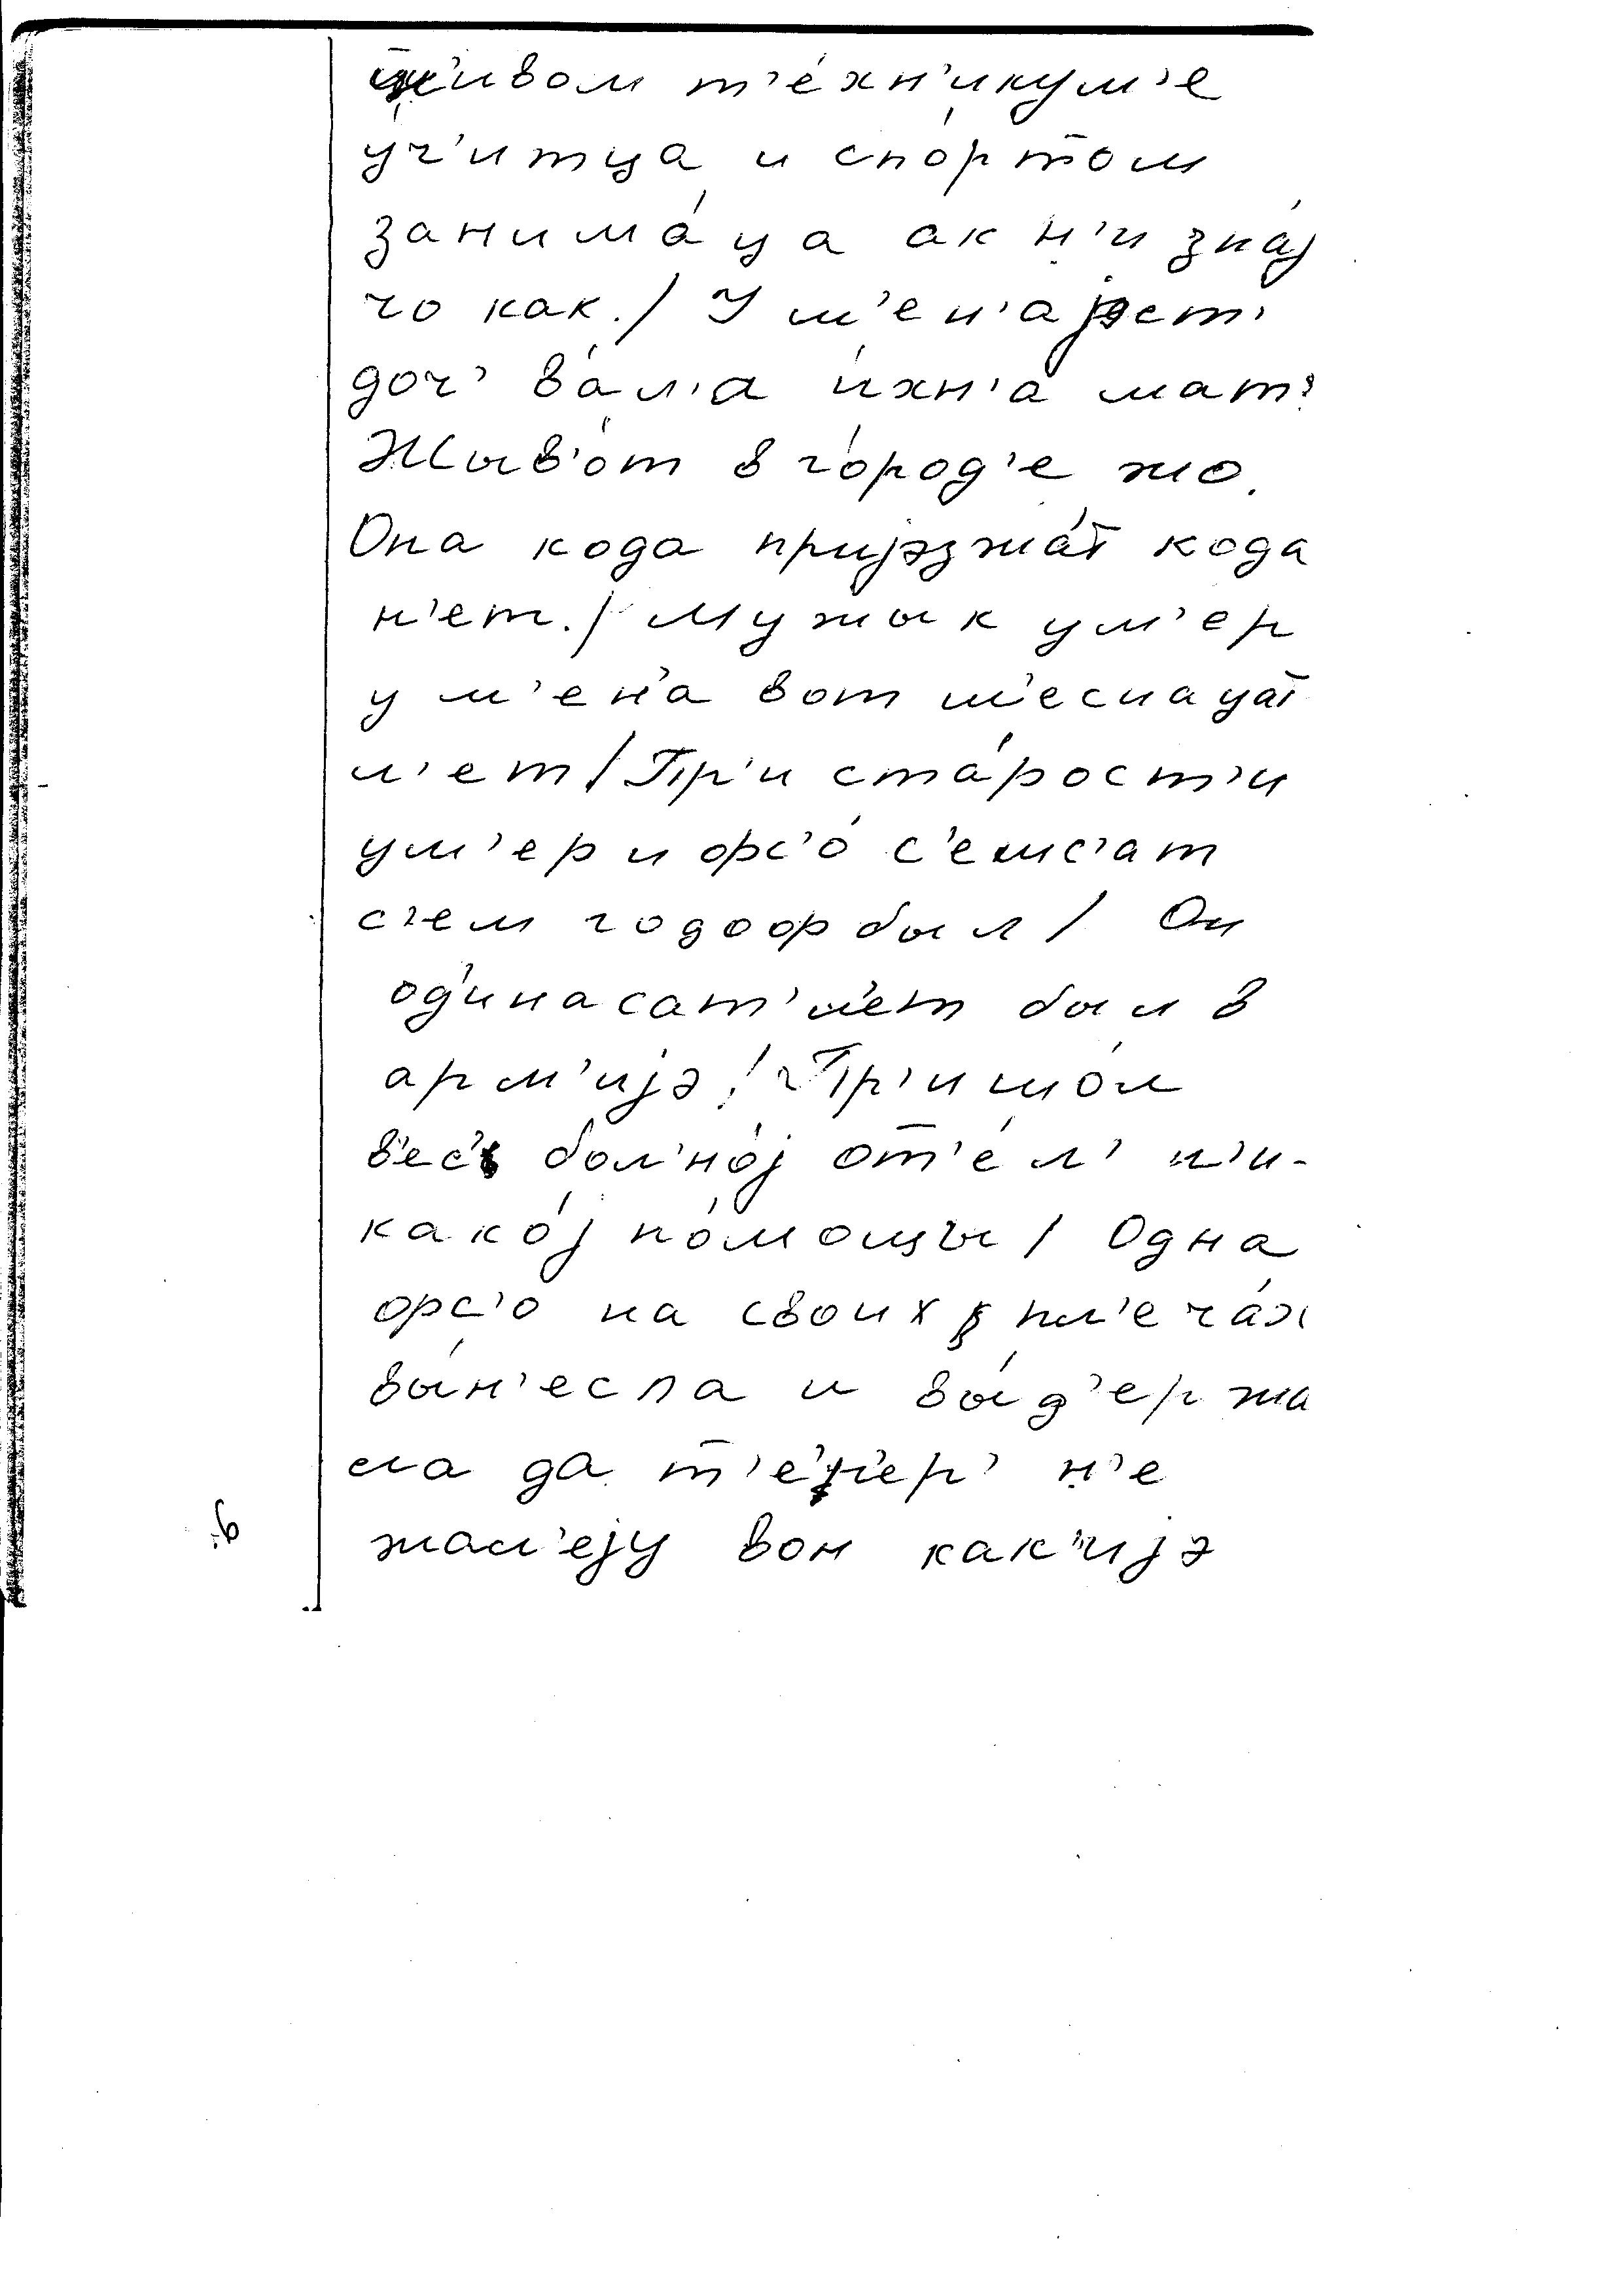 т'е́хн'икум'е
уч'итца и спо́ртом
занима́ца ак н'и зна́j
чо как./ У м'ен'а jэст'
доч' ва́л'а и́хн'а мат'
Жыв'о́т в го́род'е жо.
Она кода приjэзжа́т кода
н'ет./ Мужык ум'ер
у м'ен'а вот шеснацат
л'ет / Пр'и ста́рост'и
ум'ер и фс'о́ с'емс'ат
с'ем годоф был / Он
од'инасат' л'ет был в
арм'иjэ / Пр'ишо́л
в'ес' бол'но́j от'е́л' н'и-
како́j по́мощы / Одна
фс'о на своих пл'еча́х
вы́н'есла и вы́д'ержа
ла да т'еп'ер' н'е
жал'еjу вон как'иjэ
9.